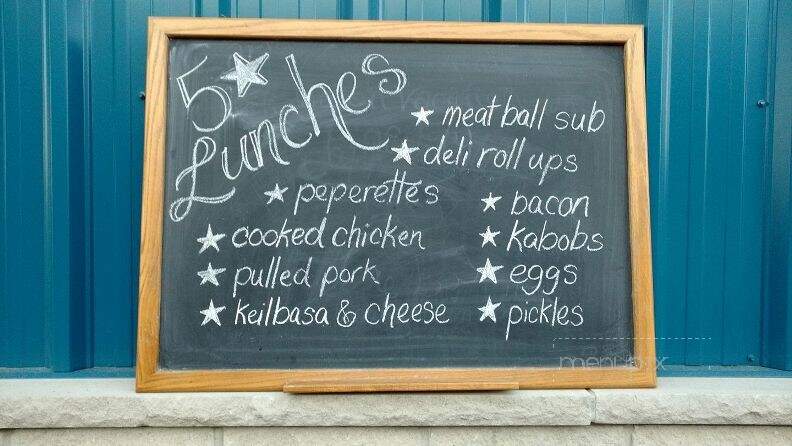 5★ Lunches
★ meatball sub
★ deli roll ups
★ peperettes
★ bacon
★ cooked chicken
★ kabobs
★ pulled pork
★ eggs
★ keilbasa & cheese
★ pickles